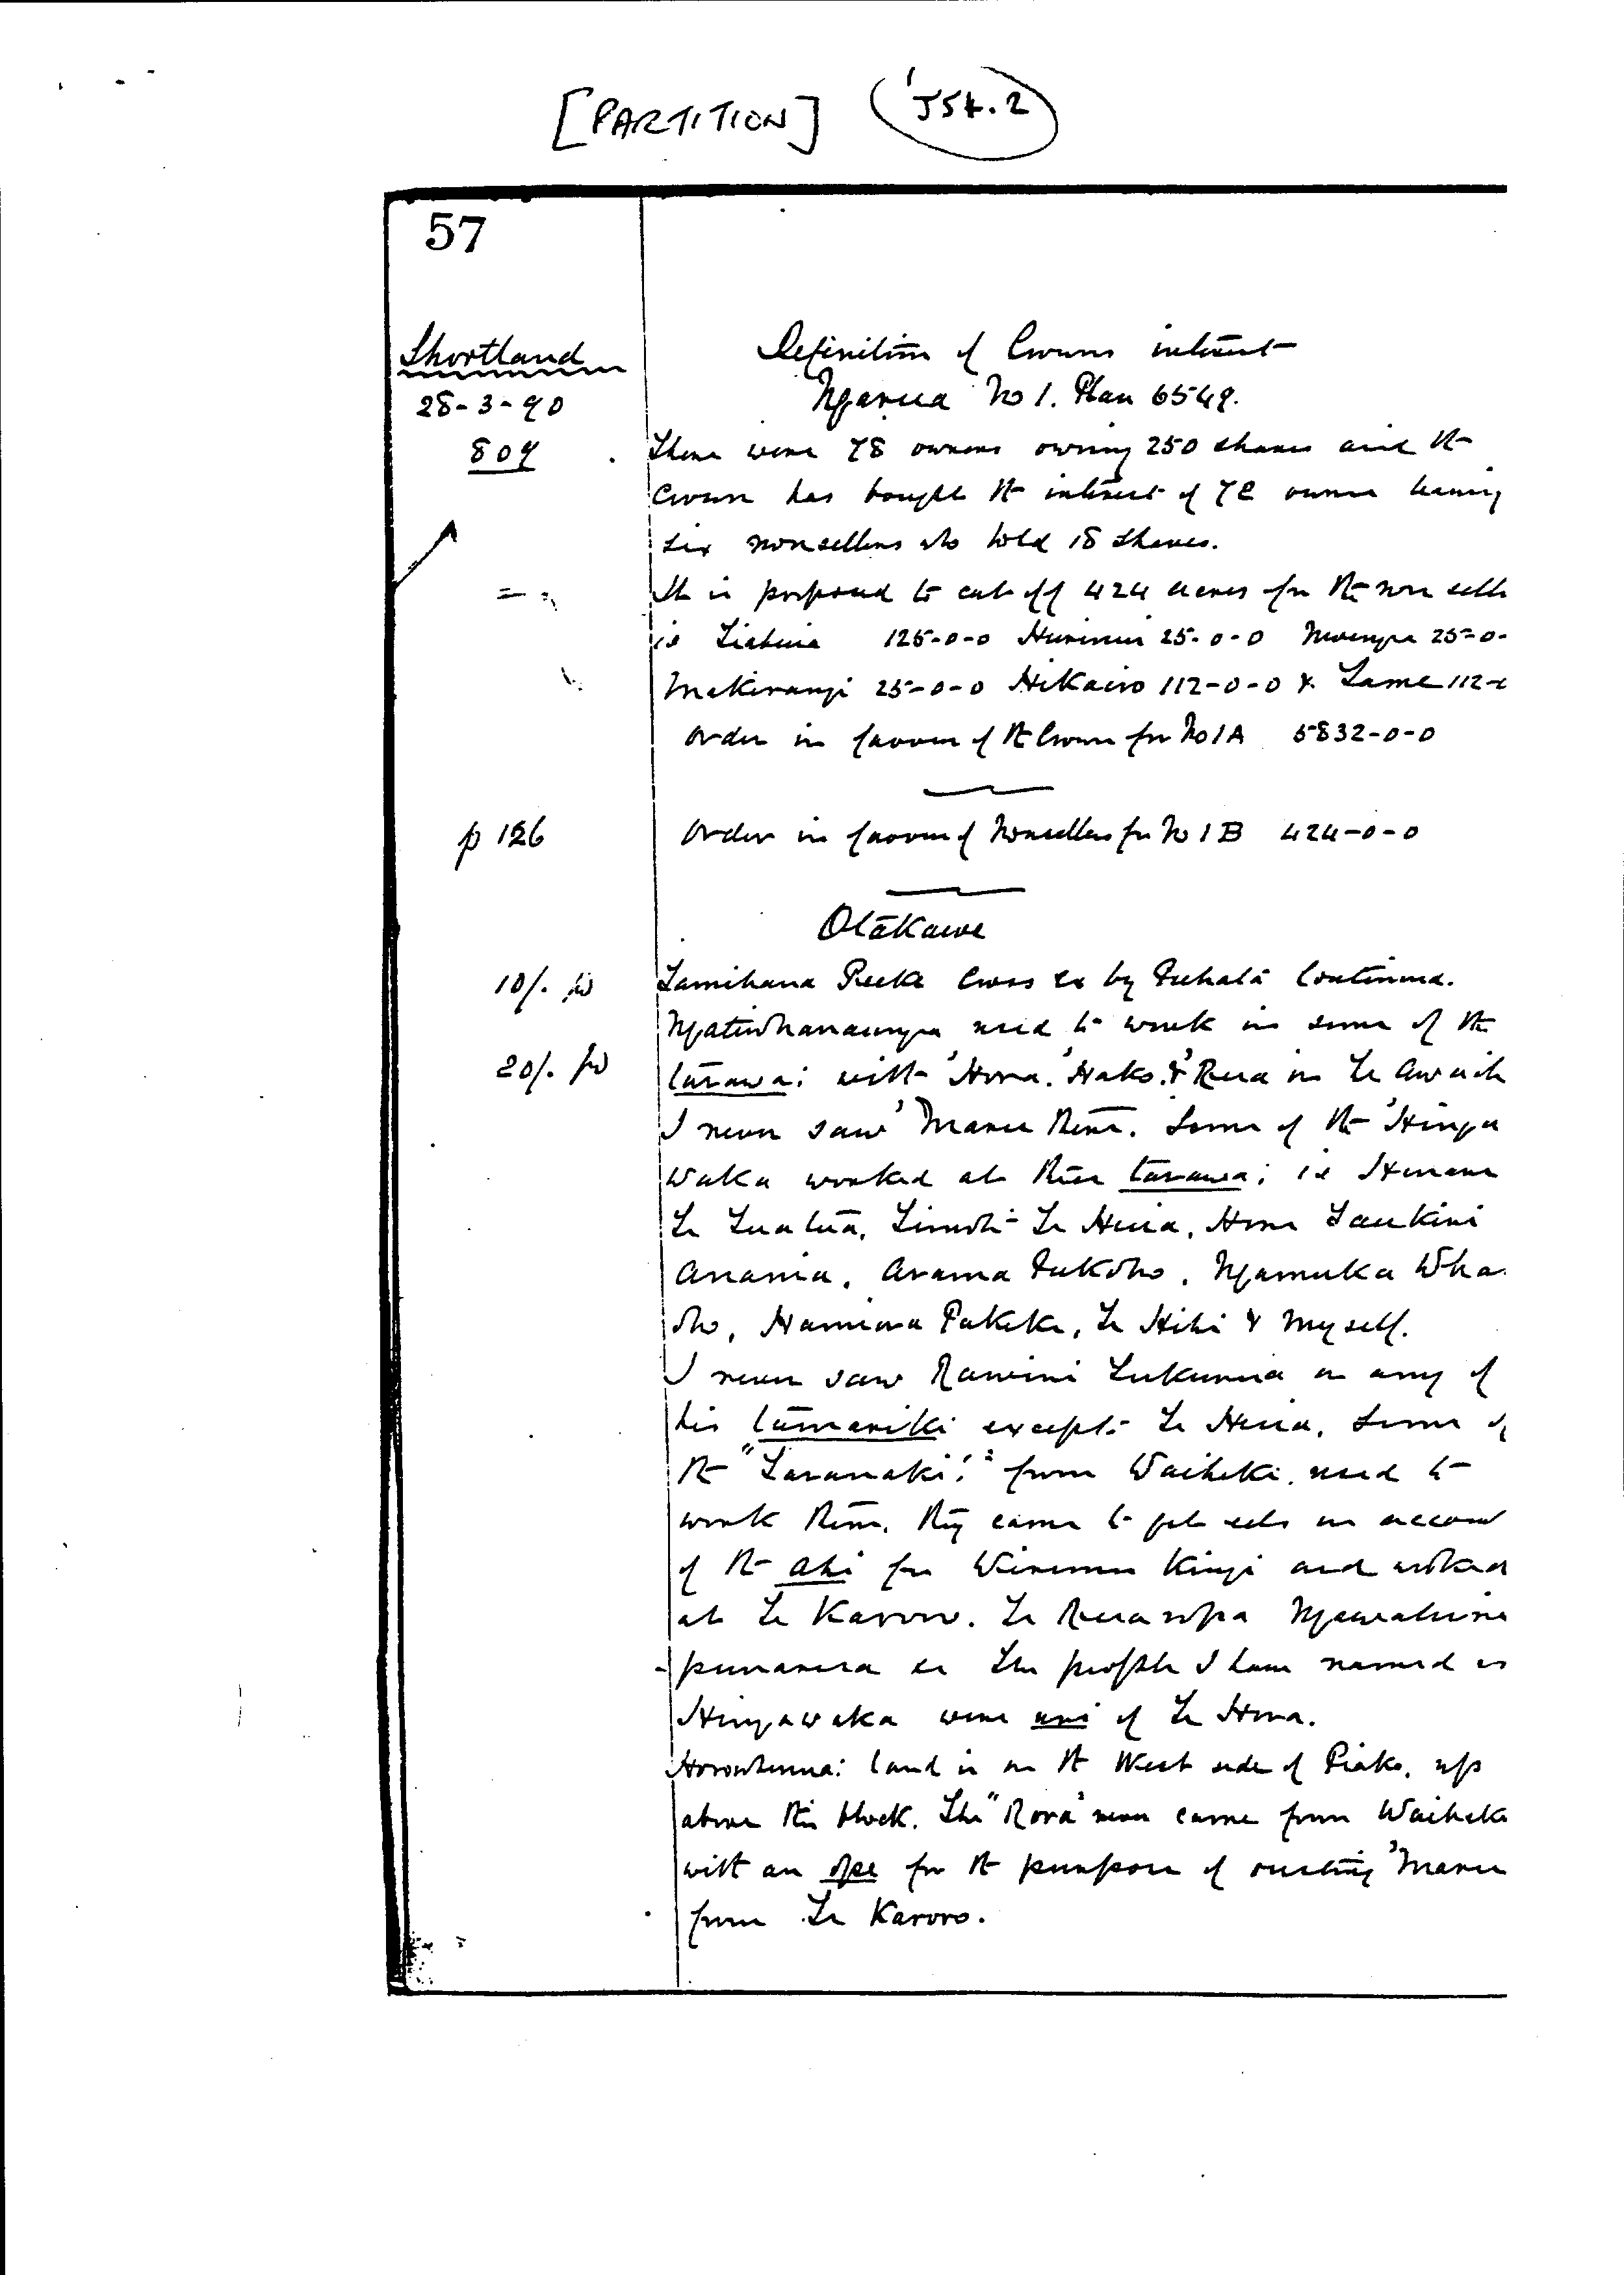 [PARTITION] J54.2
57
Shortland
28-3-90
809
Definition of Crowns interest
Ngarua No 1. Plan 6549.
There were 78 owners owning 250 shares and the
Crown has bought the interest of 72 owners leaving
six nonsellers who hold 18 shares.
It is proposed to cut off 424 acres for the non sellers
ie 125-0-0 25-0-0 25-0-
25-0-0 Hikairo 112-0-0 & Tame 112-
Order in favour of the Crown for No 1A 5832-0-0
p 126
Order in favour of Nonsellers for No 1B 424-0-0
Otakawe
10/. pd
Tamihana cross ex by Tukata Continued.
Ngatiwhanaunga used to work in some of the
20/. pd
tarawa: with 'Hora. 'Hako. & 'Rua in Te
I never saw 'Maru there. Some of the 'Hinga
waka worked at their tarawa; ie
Te Te Huia, Hone Taukiri
Anania, Arama Ngamuka Wha
Pakeke, Te Hihi & Myself.
I never saw Rawiri or any of
his tamariki except Te Huia. Some of
the "Taranaki." from Waiheke used to
work there. They came to get eels on account
of the ahi for Wiremu Kingi and worked
at Te Karoro. Te
the people I have named as
Hingawaka were uri of Te Hora.
land is on the West side of Piako, up
above this block. The "Rora" never came from Waiheke
with an ope for the purpose of ousting 'Maru
from Te Karoro.